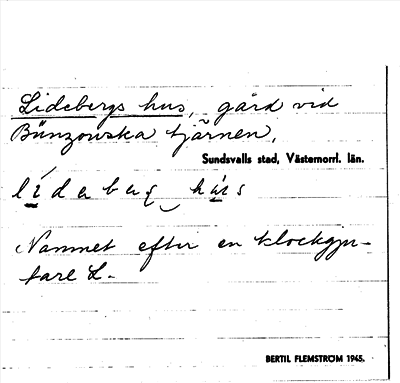 Lidebergs hus, gård vid
Bünzowska tjärnen,
Sundsvalls stad, Västernorrl. län.
Namnet efter en klockgju-
tare L-
BERTIL FLEMSTRÖM 1945.